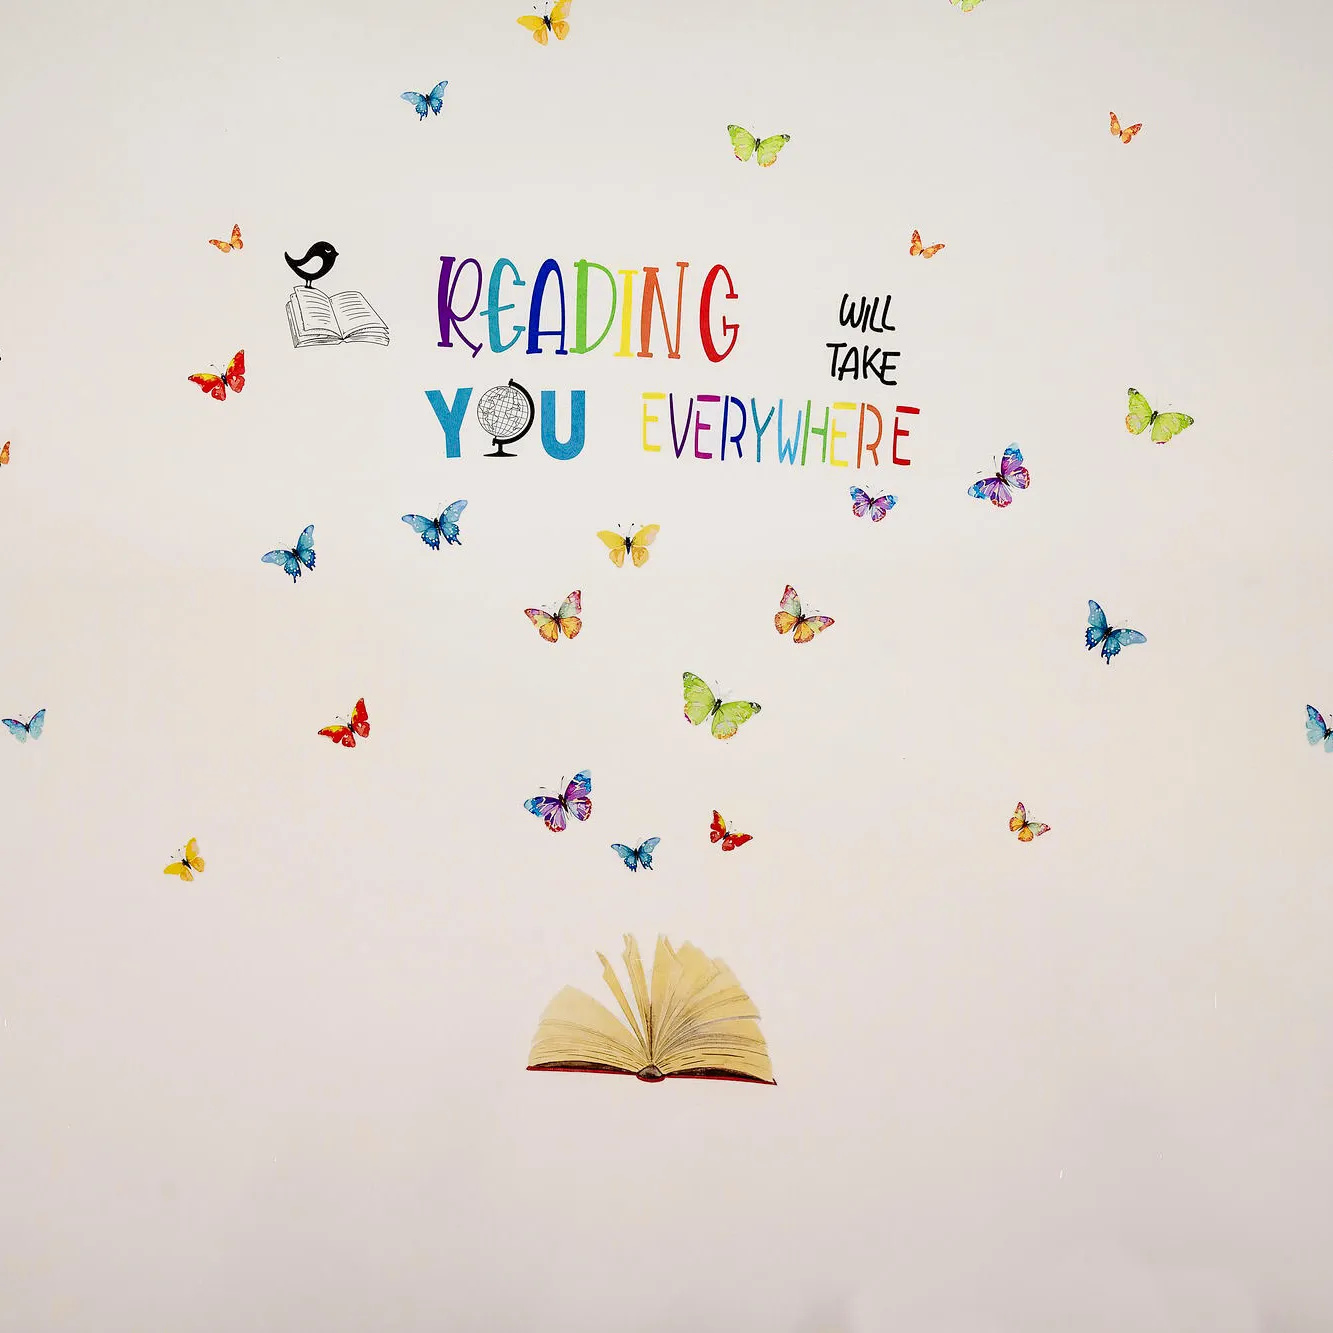 READING
WILL
TAKE
YOU EVERYWHERE